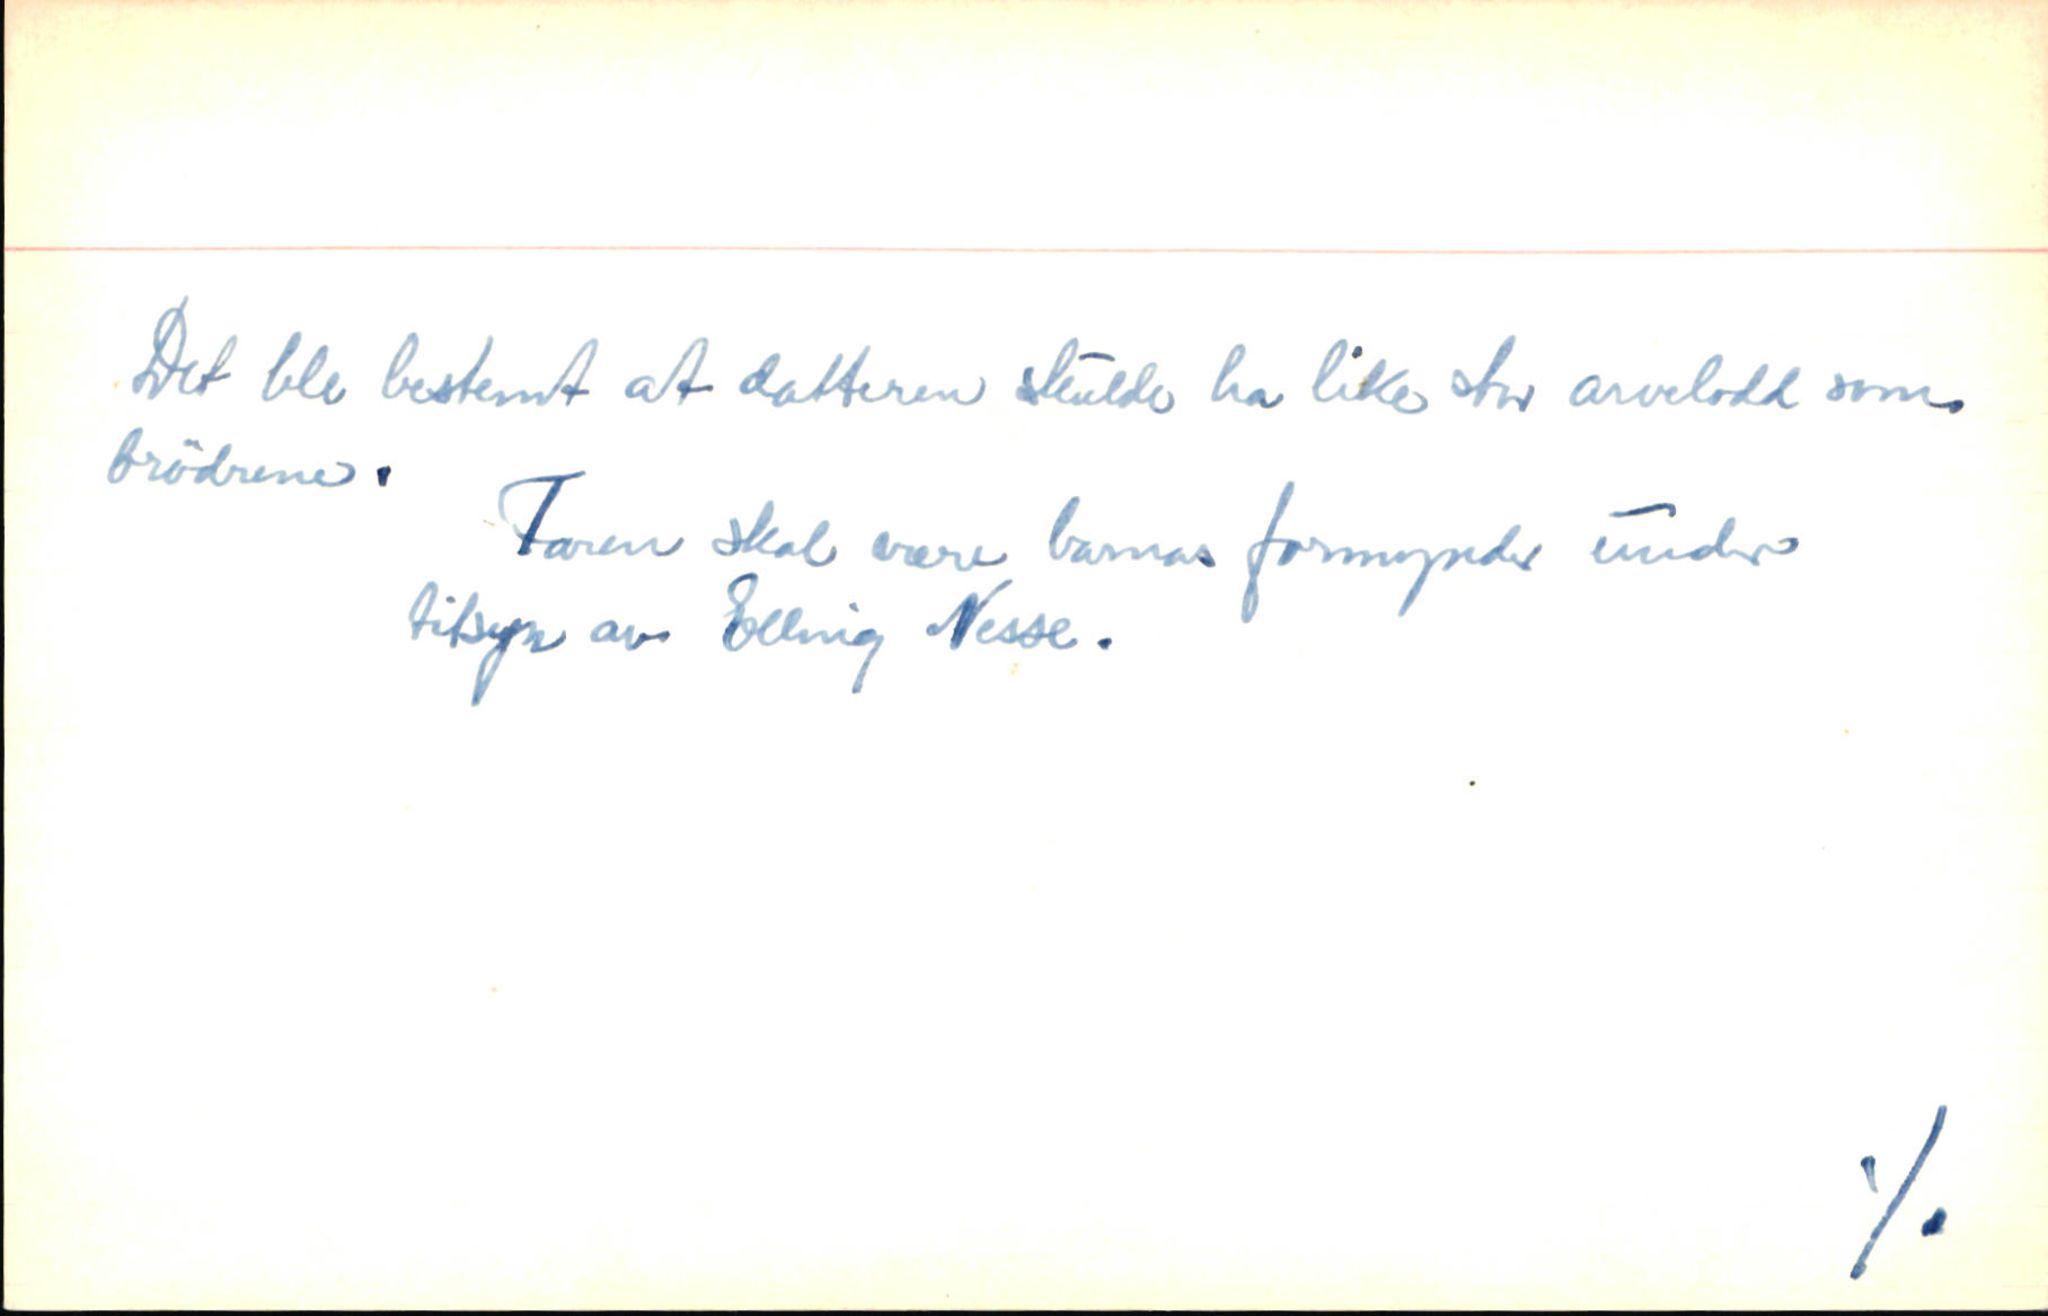 Det ble bestemt at datteren skulde ha like stor arvelodd som
brödrene.
Faren skal være barnas formynder under
tilsyn av Elling Nesse.
./.